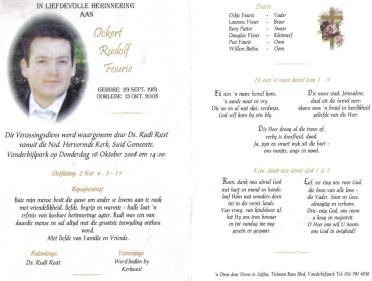 IN LIEFDEVOLLE HERINNERING
AAN
Ockert
Rudolf
Fourie
GEBORE: 29 SEPT. 1981
OORLEDE: 13 OKT. 2008
Die Verassingsdiens word waargeneem deur Ds. Rudi Rust
vanuit die Ned. Hervormde Kerk, Said Gemeente,
Vanderbijlpark op Donderdag 16 Oktober 2008 om 14:00.
Skriflesing: 2 Kor. 4 - 5 - 15
Roudgedig
Baie min mense besit die gawe om ander se lewens aan te raak
met vriendelikheid, liefde, begrip en warmte - hulle laat 'n
erfenis van kosbare herinneringe agter. Rudi was een van
daardie mense en sal altyd met die grootste toewyding onthou
word.
Met liefde van Familie en Vriende.
Bedankings:
Ds. Rudi Rust
Verversings
Word bedien by
Kerksaal
Draers
Ockie Fourie - Vader
Laurens Visser - Broer
Rory Potter - Swaer
Douglas Visser - Kleinneef
Piet Fourie - Oom
Willem Botha - Oom
Ek sien 'n nuwe hemel kom 1 - 3
Ek sien 'n nuwe hemel kom,
'n aarde nuut en vry.
Die see en al wat skei, verdwyn,
God self kom by ons bly.
Die nuwe stad, Jerusalem,
daal uit die hemel neer:
skoon soos 'n bruid in heerlikheid
geliefde van die Heer.
Die Heer droog al die trane af,
verby is droefheid, dood.
Ja, pyn en smart wyk uit die hart -
ons moeite, angs en nood.
Kom, dank nou almal God 1 & 3
Kom, dank nou almal God
met hart en mond en hande;
loof Hom wat wonders doen
tot in die verste lande.
Van vroeg, van kindsbeen af,
het Hy ons trou bewaar
en tot vandag toe nog
geseën en gespaar.
Lof, eer sing ons voor God,
die bron van alle lewe -
die Vader, Seun en Gees,
almagtig en verhewe.
Drie-enig God, ons roem
u krag en majesteit.
O Heer ons wil U noem
ons God in ewigheid!